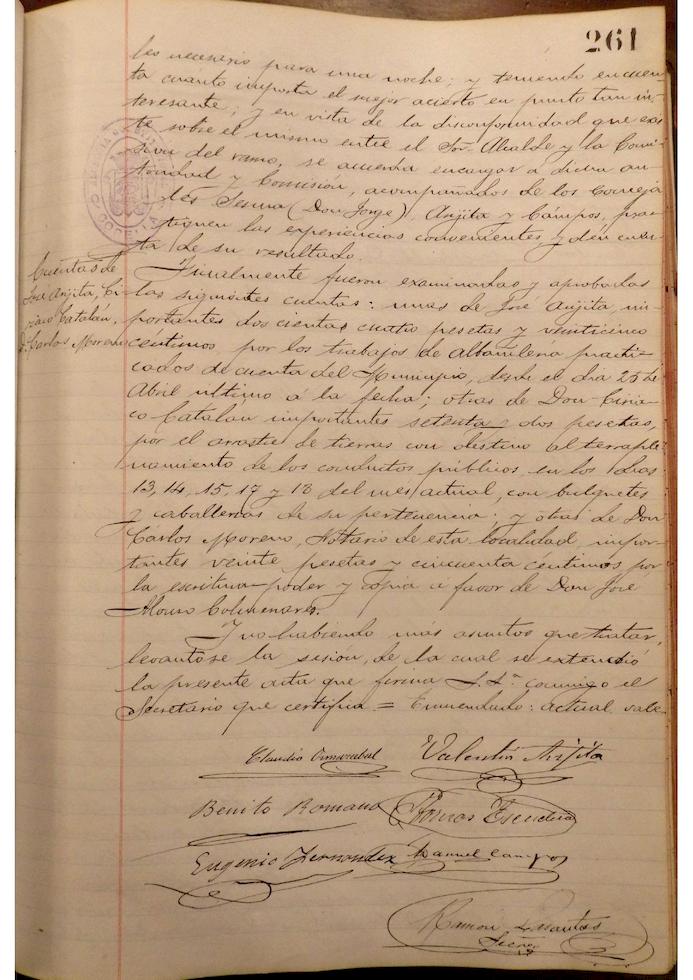 261
les necesario para una noche; y teniendo en cuen-
ta cuanto importa el mejor acierto en punto tan in-
teresante; y en vista de la disconformidad que exis-
te sobre el mismo entre el Sor. Alcalde y la Comi-
sion del ramo, se acuerda encargar a dicha au-
toridad y Comisión, acompañados de los Conceja-
les Sesma (Don Jorge), Arjita y Campos, prac-
tiquen las experiencias convenientes, y den cuen-
ta de su resultado.
Cuentas de
José Arjita, Ci-
riaco Catalán,
Carlos Moreno
Igualmente fueron examinadas y aprobadas
las siguientes cuentas: unas de José Arjita, im-
portantes dos cientas cuatro pesetas y veinticinco
céntimos por los trabajos de albañilería practi-
cados de cuenta del Municipio, desde el dia 25 de
Abril ultimo a la fecha; otras de Don Ciria-
co Catalán importantes setenta y dos pesetas,
por el arrastre de tierras con destino al terraple-
namiento de los conductos públicos, en los dias
13, 14, 15, 17 y 18 del mes actual, con bulquetes
y caballerias de su pertenencia; y otras de Don
Cárlos Moreno, Notario de esta localidad, impor-
tantes veinte pesetas y cincuenta céntimos por
la escritura-poder y copia a favor de Don José
Alonso Colmenares.
Y no habiendo más asuntos que tratar,
levantose la sesión, de la cual se extendió
la presente acta que firma S.S.ª conmigo el
Secretario que certifica = Enmendado: actual vale
Claudio Valentin Arjita
Benito Romano Tomas Escudero
Eugenio Fernandez Manuel Campos
Ramon
Secrio